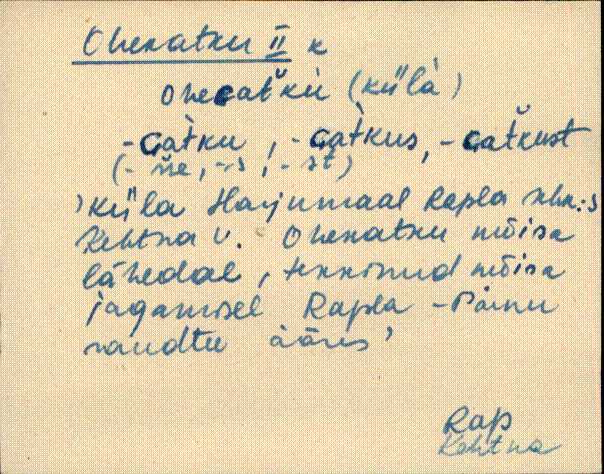 Ohekatku II k
ohecat̆kù (külà)
-càt̆ku, -càt̆kus, -cat̆kust
(-ne, -s, -st)
'küla Harjumaal Rapla khk:s
Kehtna v. Ohekatku mõisa
lähedal, tekkinud mõisa
jagamisel Rapla-Pärnu
raudtee ääres'
Rap
Kehtna